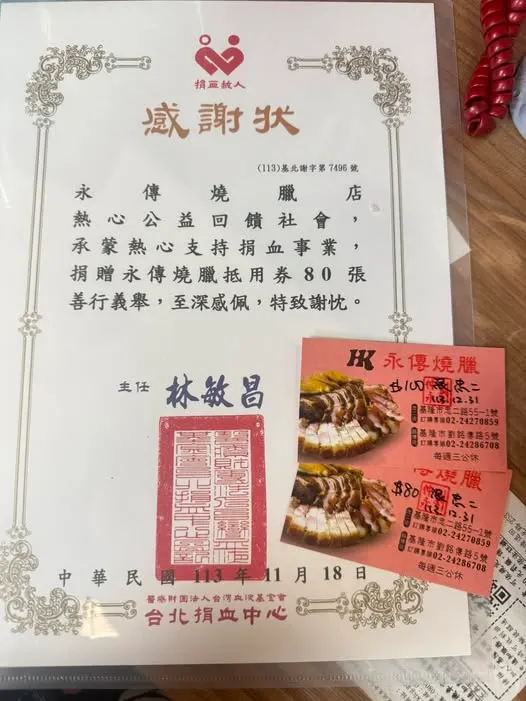 捐血救人
感謝狀
(113)基北謝字第7496號
永傳燒臘店
熱心公益回饋社會，
承蒙熱心支持捐血事業，
捐贈永傳燒臘抵用券80張
善行義舉，至深感佩，特致謝忱。
主任 林敏昌
中華民國 113 年 11 月 18 日
醫療財團法人台灣血液基金會
台北捐血中心
HK 永傳燒臘
$100 限忠二
113.12.31
基隆市忠二路55-1號
訂購專線02-24270859
基隆市劉銘傳路5號
訂購專線02-24286708
每週三公休
燒臘
$80 限忠二
12.31
基隆市忠二路55-1號
訂購專線02-24270859
基隆市劉銘傳路5號
訂購專線02-24286708
每週三公休